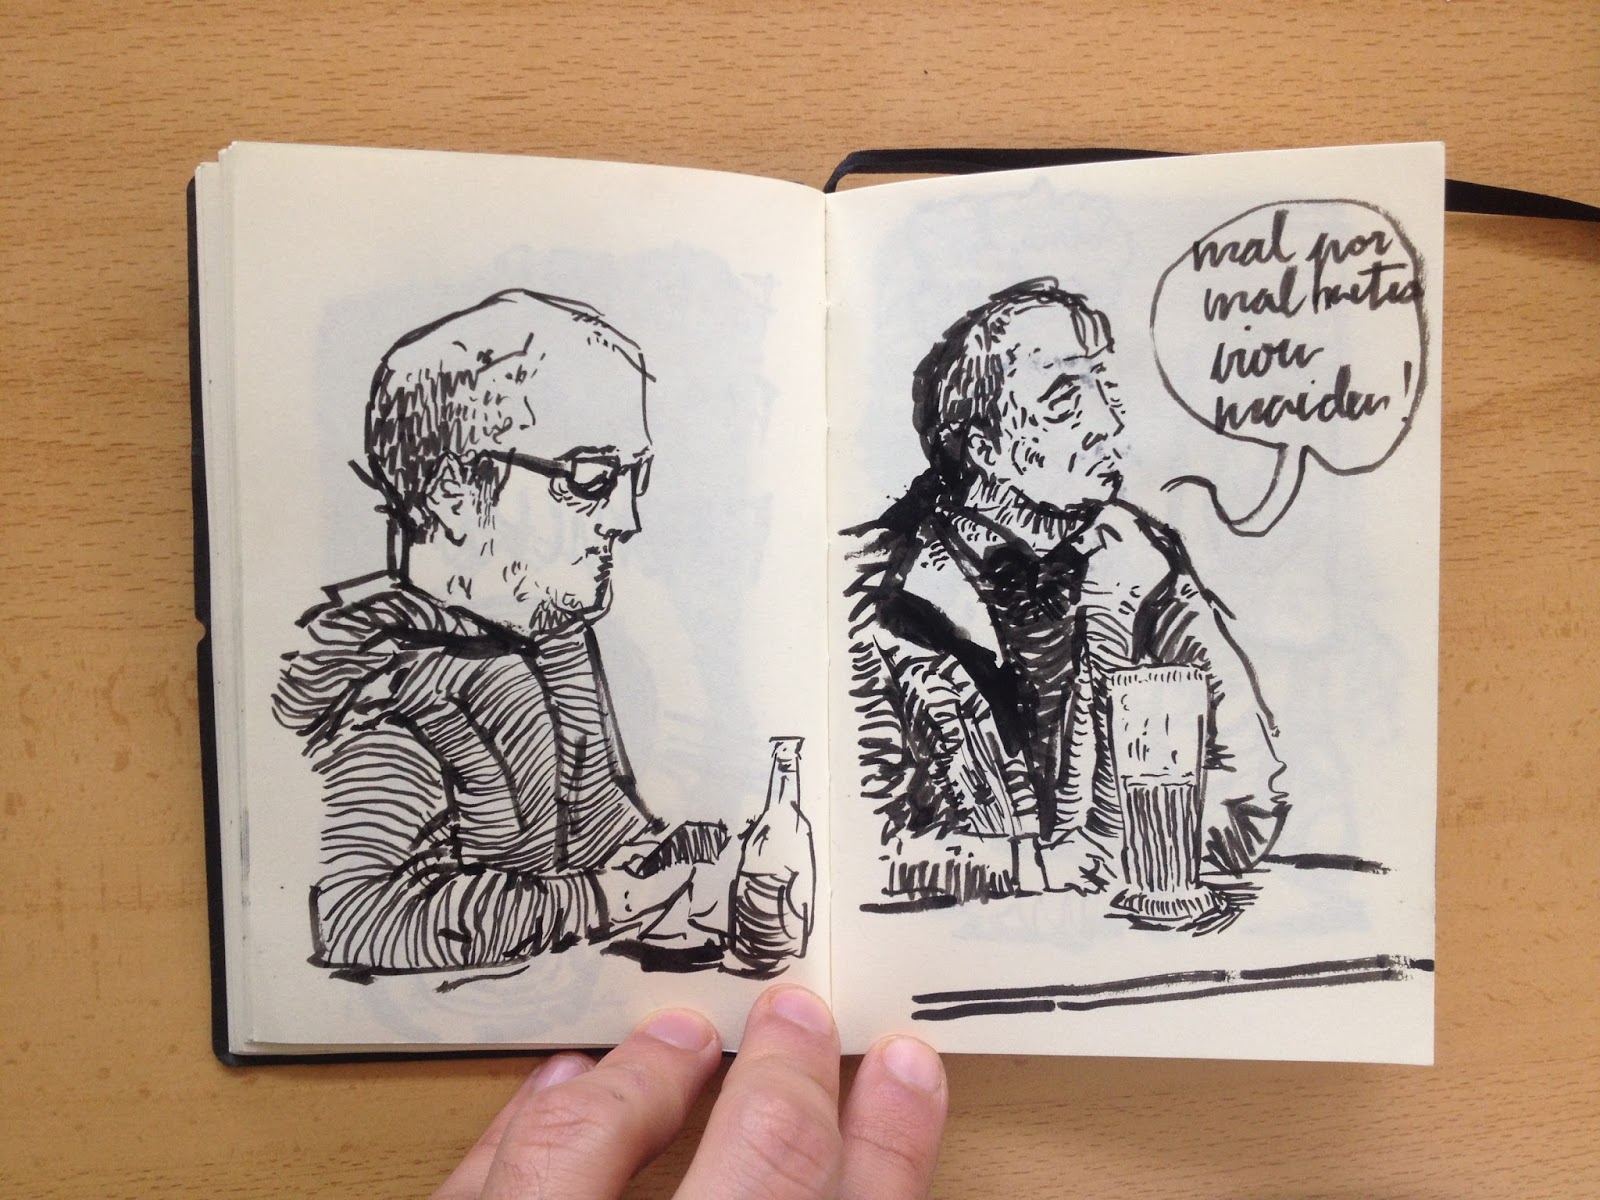 mal por
mal
iron
maiden!